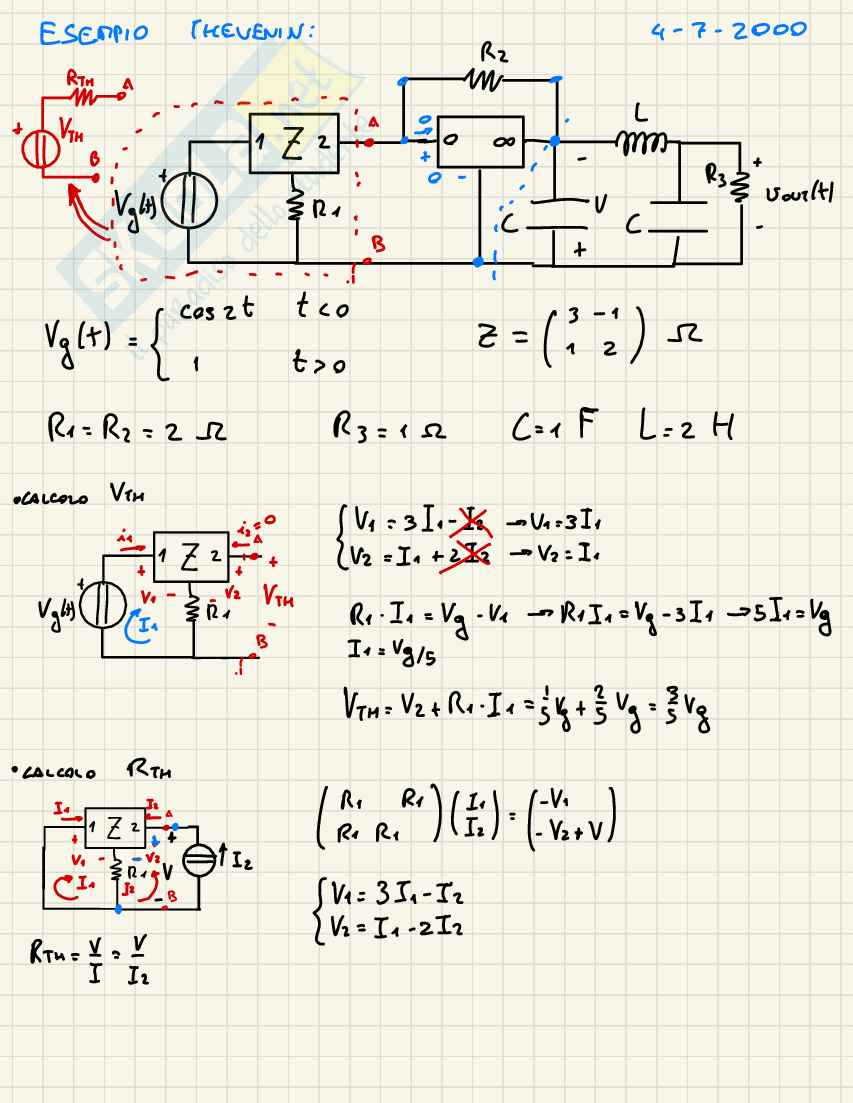 ESEMPIO THEVENIN: 4-7-2000
R2
RTH A
+ VTH
B
1 Z 2 A
0 0 ∞
+
0 -
- L
Vg(t) +
R1
C V
+
C R3 + vout(t) -
B
SKUOLA.net
Vg(t) = { cos 2t t<0
1 t>0
Z = (3 -1
1 2) Ω
R1 = R2 = 2 Ω R3 = 1 Ω C=1 F L=2 H
• CALCOLO VTH
i1 1 Z 2 i2=0 A
+ + + +
Vg(t) V1 - - V2 VTH
I1 R1 -
B
{ V1 = 3I1 - I2 → V1=3I1
V2 = I1 + 2I2 → V2=I1
R1·I1 = Vg - V1 → R1I1 = Vg - 3I1 → 5I1 = Vg
I1 = Vg/5
VTH = V2 + R1·I1 = 1/5 Vg + 2/5 Vg = 3/5 Vg
• CALCOLO RTH
I1 1 Z 2 I2 A
+ + +
V1 - - V2
I1 R1 V I2
I2 - B
(R1 R1
R1 R1) (I1
I2) = (-V1
-V2+V)
{ V1 = 3I1 - I2
V2 = I1 - 2I2
RTH = V/I = V/I2